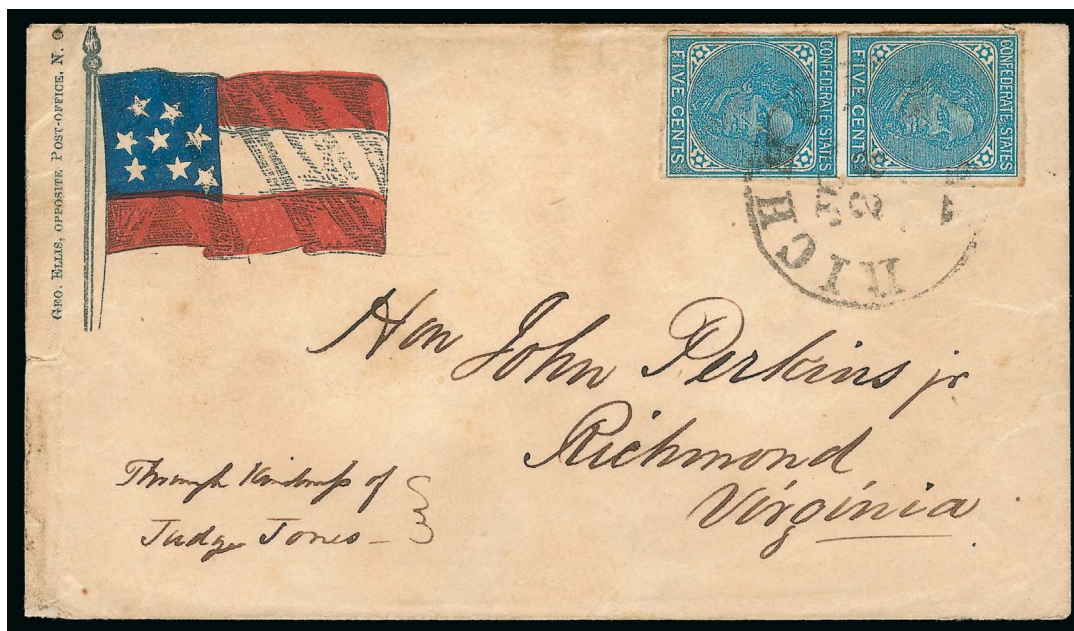 GEO. ELLIS, OPPOSITE POST-OFFICE, N. O
CONFEDERATE STATES
FIVE CENTS
CONFEDERATE STATES
FIVE CENTS
RICH
Hon John Perkins jr
Richmond
Virginia
Through Kindness of
Judge Jones